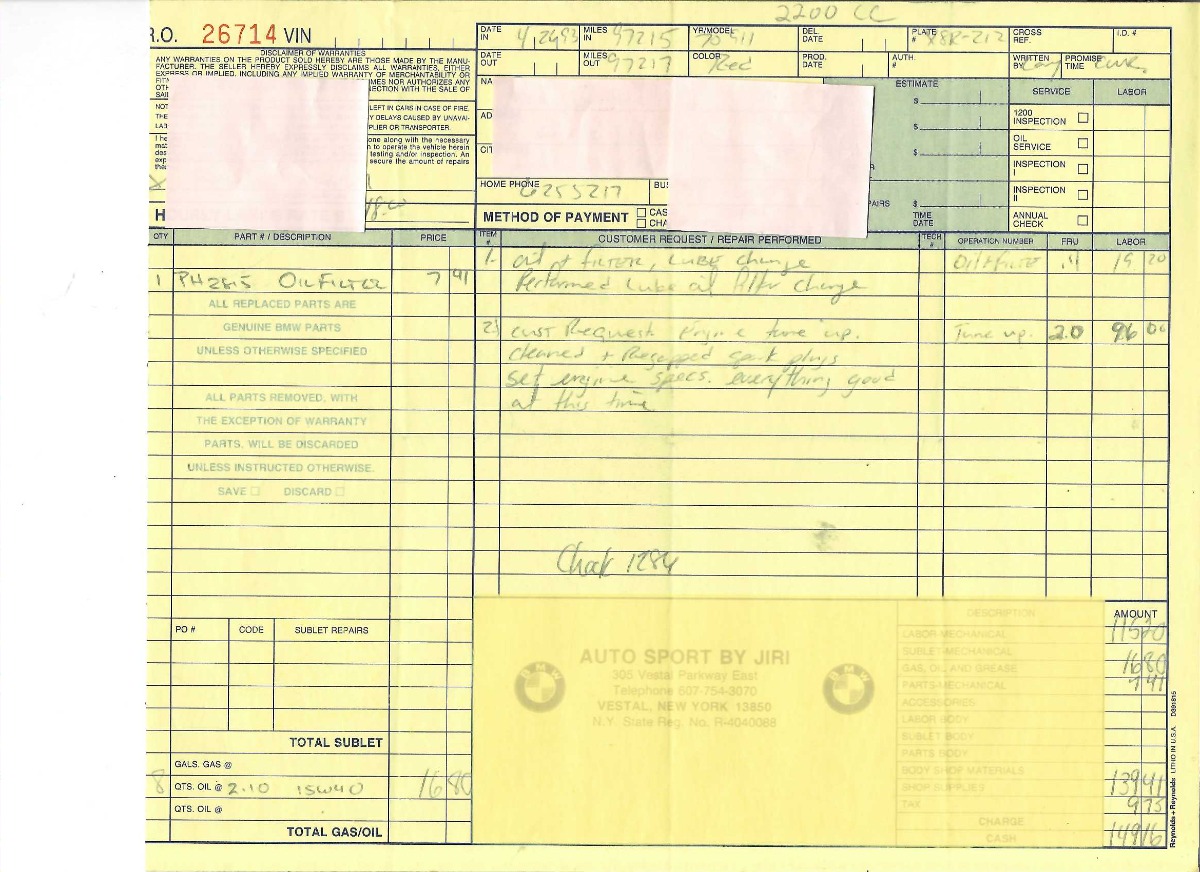 2200 CC
R.O. 26714 VIN
DATE IN 4 26 93 MILES IN 97215 YR/MODEL DEL. DATE PLATE # X8R-212 CROSS REF. I.D. #
DATE OUT MILES OUT 97217 COLOR Red PROD. DATE AUTH. # WRITTEN BY PROMISE TIME
DISCLAIMER OF WARRANTIES
ANY WARRANTIES ON THE PRODUCT SOLD HEREBY ARE THOSE MADE BY THE MANU-
FACTURER. THE SELLER HEREBY EXPRESSLY DISCLAIMS ALL WARRANTIES, EITHER
EXPRESS OR IMPLIED, INCLUDING ANY IMPLIED WARRANTY OF MERCHANTABILITY OR
NOR AUTHORIZES ANY
CONNECTION WITH THE SALE OF
LEFT IN CARS IN CASE OF FIRE,
DELAYS CAUSED BY UNAVAI-
PLIER OR TRANSPORTER.
one along with the necessary
to operate the vehicle herein
testing and/or inspection. An
secure the amount of repairs
X
NA
AD
CIT
HOME PHONE 6255217 BUS
METHOD OF PAYMENT CAS
CHA
ESTIMATE
$
$
$
PAIRS $
TIME
DATE
SERVICE LABOR
1200 INSPECTION
OIL SERVICE
INSPECTION I
INSPECTION II
ANNUAL CHECK
QTY PART # / DESCRIPTION PRICE ITEM # CUSTOMER REQUEST / REPAIR PERFORMED TECH # OPERATION NUMBER FRU LABOR
1. oil + FILTER, LUBE change Oil + Filter .4 19 20
1 PH2815 OIL FILTER 7 41 Performed Lube oil filter change
ALL REPLACED PARTS ARE
GENUINE BMW PARTS 2. CUST Request Engine tune up. Tune up. 2.0 96 00
UNLESS OTHERWISE SPECIFIED cleaned + Regapped spark plugs
set engine specs. everything good
ALL PARTS REMOVED, WITH at this time
THE EXCEPTION OF WARRANTY
PARTS, WILL BE DISCARDED
UNLESS INSTRUCTED OTHERWISE.
SAVE DISCARD
Check 1284
PO # CODE SUBLET REPAIRS
TOTAL SUBLET
GALS. GAS @
8 QTS. OIL @ 2.10 15W40 16 80
QTS. OIL @
TOTAL GAS/OIL
BMW
AUTO SPORT BY JIRI
305 Vestal Parkway East
Telephone 607-754-3070
VESTAL, NEW YORK 13850
N.Y. State Reg. No. R-4040088
BMW
DESCRIPTION AMOUNT
LABOR-MECHANICAL 115 20
SUBLET-MECHANICAL
GAS, OIL AND GREASE 16 80
PARTS-MECHANICAL 7 41
ACCESSORIES
LABOR BODY
SUBLET BODY
PARTS BODY
BODY SHOP MATERIALS
SHOP SUPPLIES 139 41
TAX 9 75
CHARGE
CASH 149 16
Reynolds + Reynolds LITHO IN U.S.A. D891815